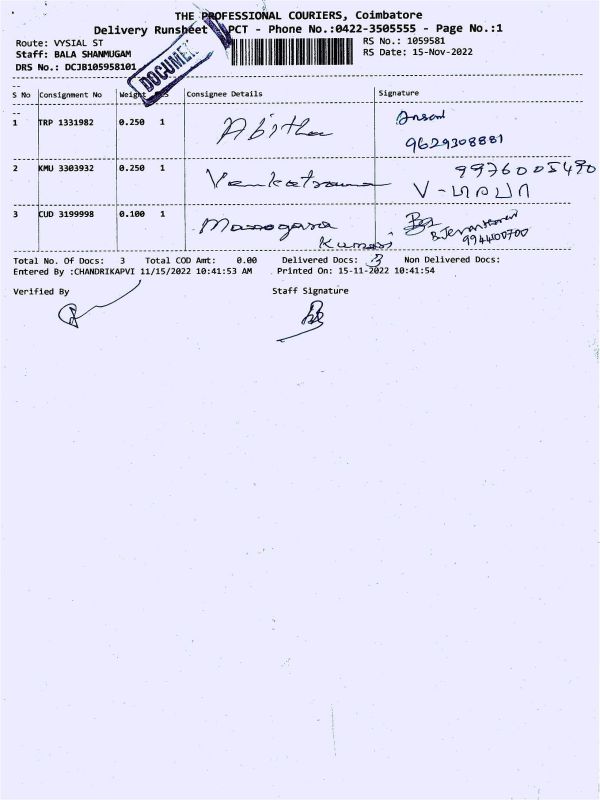 THE PROFESSIONAL COURIERS, Coimbatore
Delivery Runsheet PCT - Phone No.:0422-3505555 - Page No.:1
Route: VYSIAL ST
RS No.: 1059581
Staff: BALA SHANMUGAM
RS Date: 15-Nov-2022
DRS No.: DCJB105958101
DOCUMENT
S No Consignment No Weight Pcs Consignee Details Signature
1 TRP 1331982 0.250 1 Abitha
9629308881
2 KMU 3303932 0.250 1 Venkatrama 9976005490
3 CUD 3199998 0.100 1 Manogara
Kumari 994400700
Total No. Of Docs: 3 Total COD Amt: 0.00 Delivered Docs: 3 Non Delivered Docs:
Entered By :CHANDRIKAPVI 11/15/2022 10:41:53 AM Printed On: 15-11-2022 10:41:54
Verified By Staff Signature